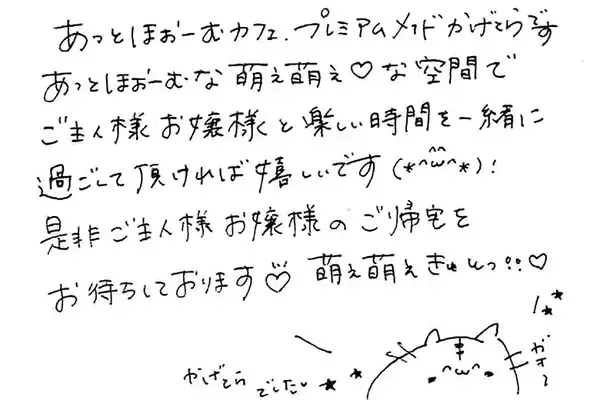 あっとほぉーむカフェ.プレミアムメイドかげてらです
あっとほぉーむな萌え萌え♡な空間で
ご主人様お嬢様と楽しい時間を一緒に
過ごして頂ければ嬉しいです(*^ω^*)!
是非ご主人様お嬢様のご帰宅を
お待ちしております♡ 萌え萌えきゅんっ!!♡
かげてら でした! ★ ★
ガオー